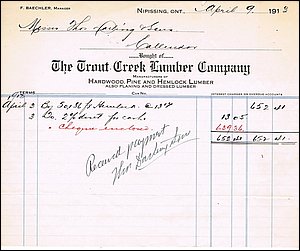 F. BAECHLER, MANAGER
NIPISSING, ONT., April 9. 1913
Messrs Thos Darling & Sons
Callender
Bought of
The Trout Creek Lumber Company
MANUFACTURERS OF
HARDWOOD, PINE AND HEMLOCK LUMBER
ALSO PLANING AND DRESSED LUMBER
CAR NO.
TERMS
INTEREST CHARGED ON OVERDUE ACCOUNTS
April 3 By Hemlock @ 652 41
3 By 2% disct for cash 13 05
Cheque enclosed 639 36
652 41 652 41
Received payment
Thos Darling & Son